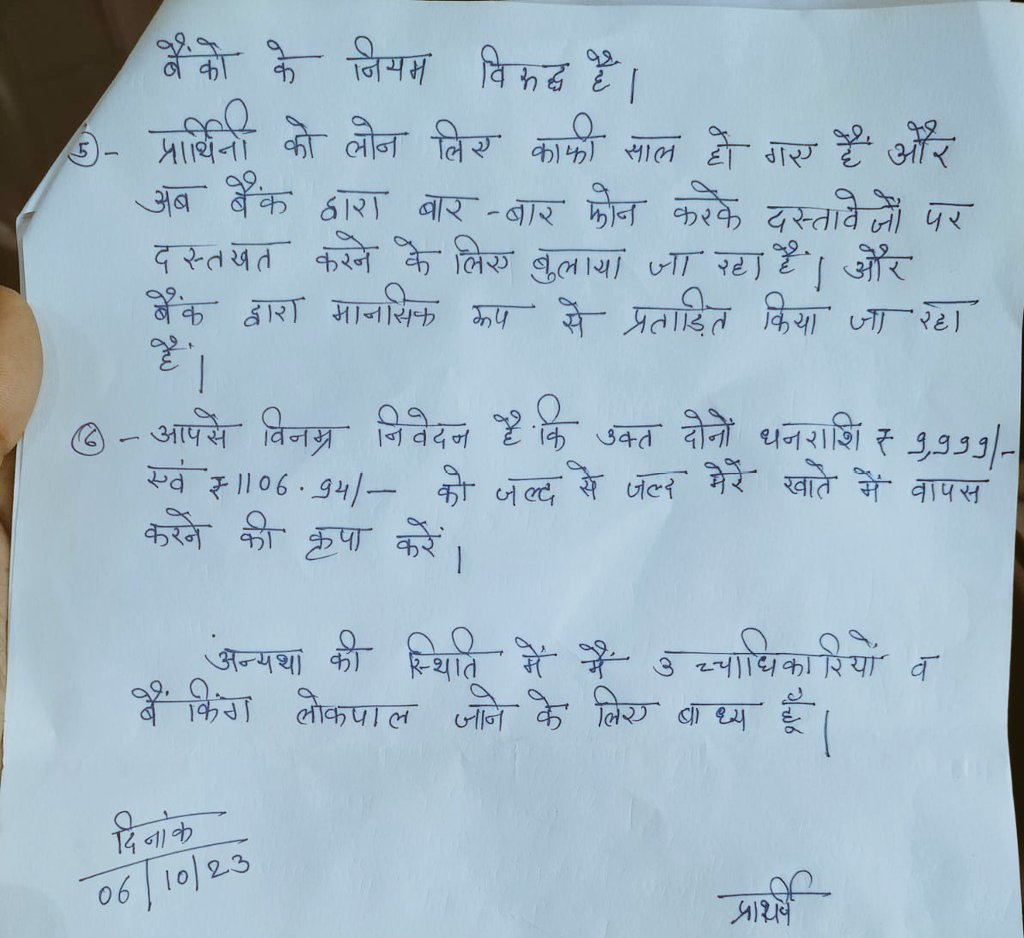 बैंको के नियम विरूद्ध है।
5 - प्रार्थिनी को लोन लिए काफी साल हो गए हैं और
अब बैंक द्वारा बार-बार फोन करके दस्तावेजों पर
दस्तखत करने के लिए बुलाया जा रहा है। और
बैंक द्वारा मानसिक रूप से प्रताड़ित किया जा रहा
हैं।
6 - आपसे विनम्र निवेदन है कि उक्त दोनों धनराशि ₹ 9,999/-
एवं ₹1106.94/- को जल्द से जल्द मेरे खाते में वापस
करने की कृपा करें।
अन्यथा की स्थिति में मैं उच्चाधिकारियों व
बैंकिंग लोकपाल जाने के लिए बाध्य हूँ।
दिनांक
06/10/23
प्रार्थी